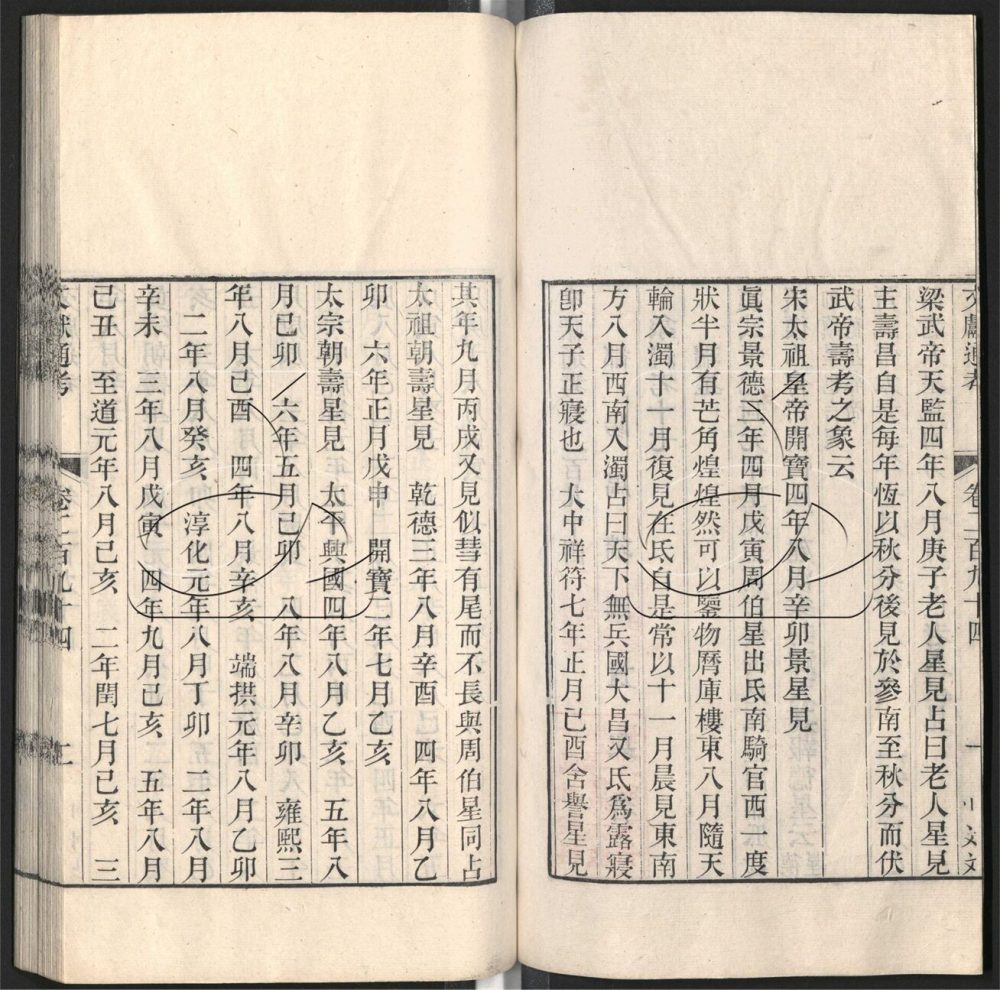 文獻通考 卷二百九十四 一
梁武帝天監四年八月庚子老人星見占曰老人星見
主壽昌自是每年恆以秋分後見於參南至秋分而伏
武帝壽考之象云
宋太祖皇帝開寶四年八月辛卯景星見
眞宗景德三年四月戊寅周伯星出氐南騎官西一度
狀半月有芒角煌煌然可以鑒物曆庫樓東八月隨天
輪入濁十一月復見在氐自是常以十一月晨見東南
方八月西南入濁占曰天下無兵國大昌又氐爲露寢
卽天子正寢也 大中祥符七年正月己酉含譽星見
其年九月丙戌又見似彗有尾而不長與周伯星同占
太祖朝壽星見 乾德三年八月辛酉 四年八月乙
卯 六年正月戊申 開寶二年七月乙亥
太宗朝壽星見 太平興國四年八月乙亥 五年八
月己卯 六年五月己卯 八年八月辛卯 雍熙三
年八月己酉 四年八月辛亥 端拱元年八月乙卯
二年八月癸亥 淳化元年八月丁卯 二年八月
辛未 三年八月戊寅 四年九月己亥 五年八月
己丑 至道元年八月己亥 二年閏七月己亥 三
文獻通考 卷二百九十四